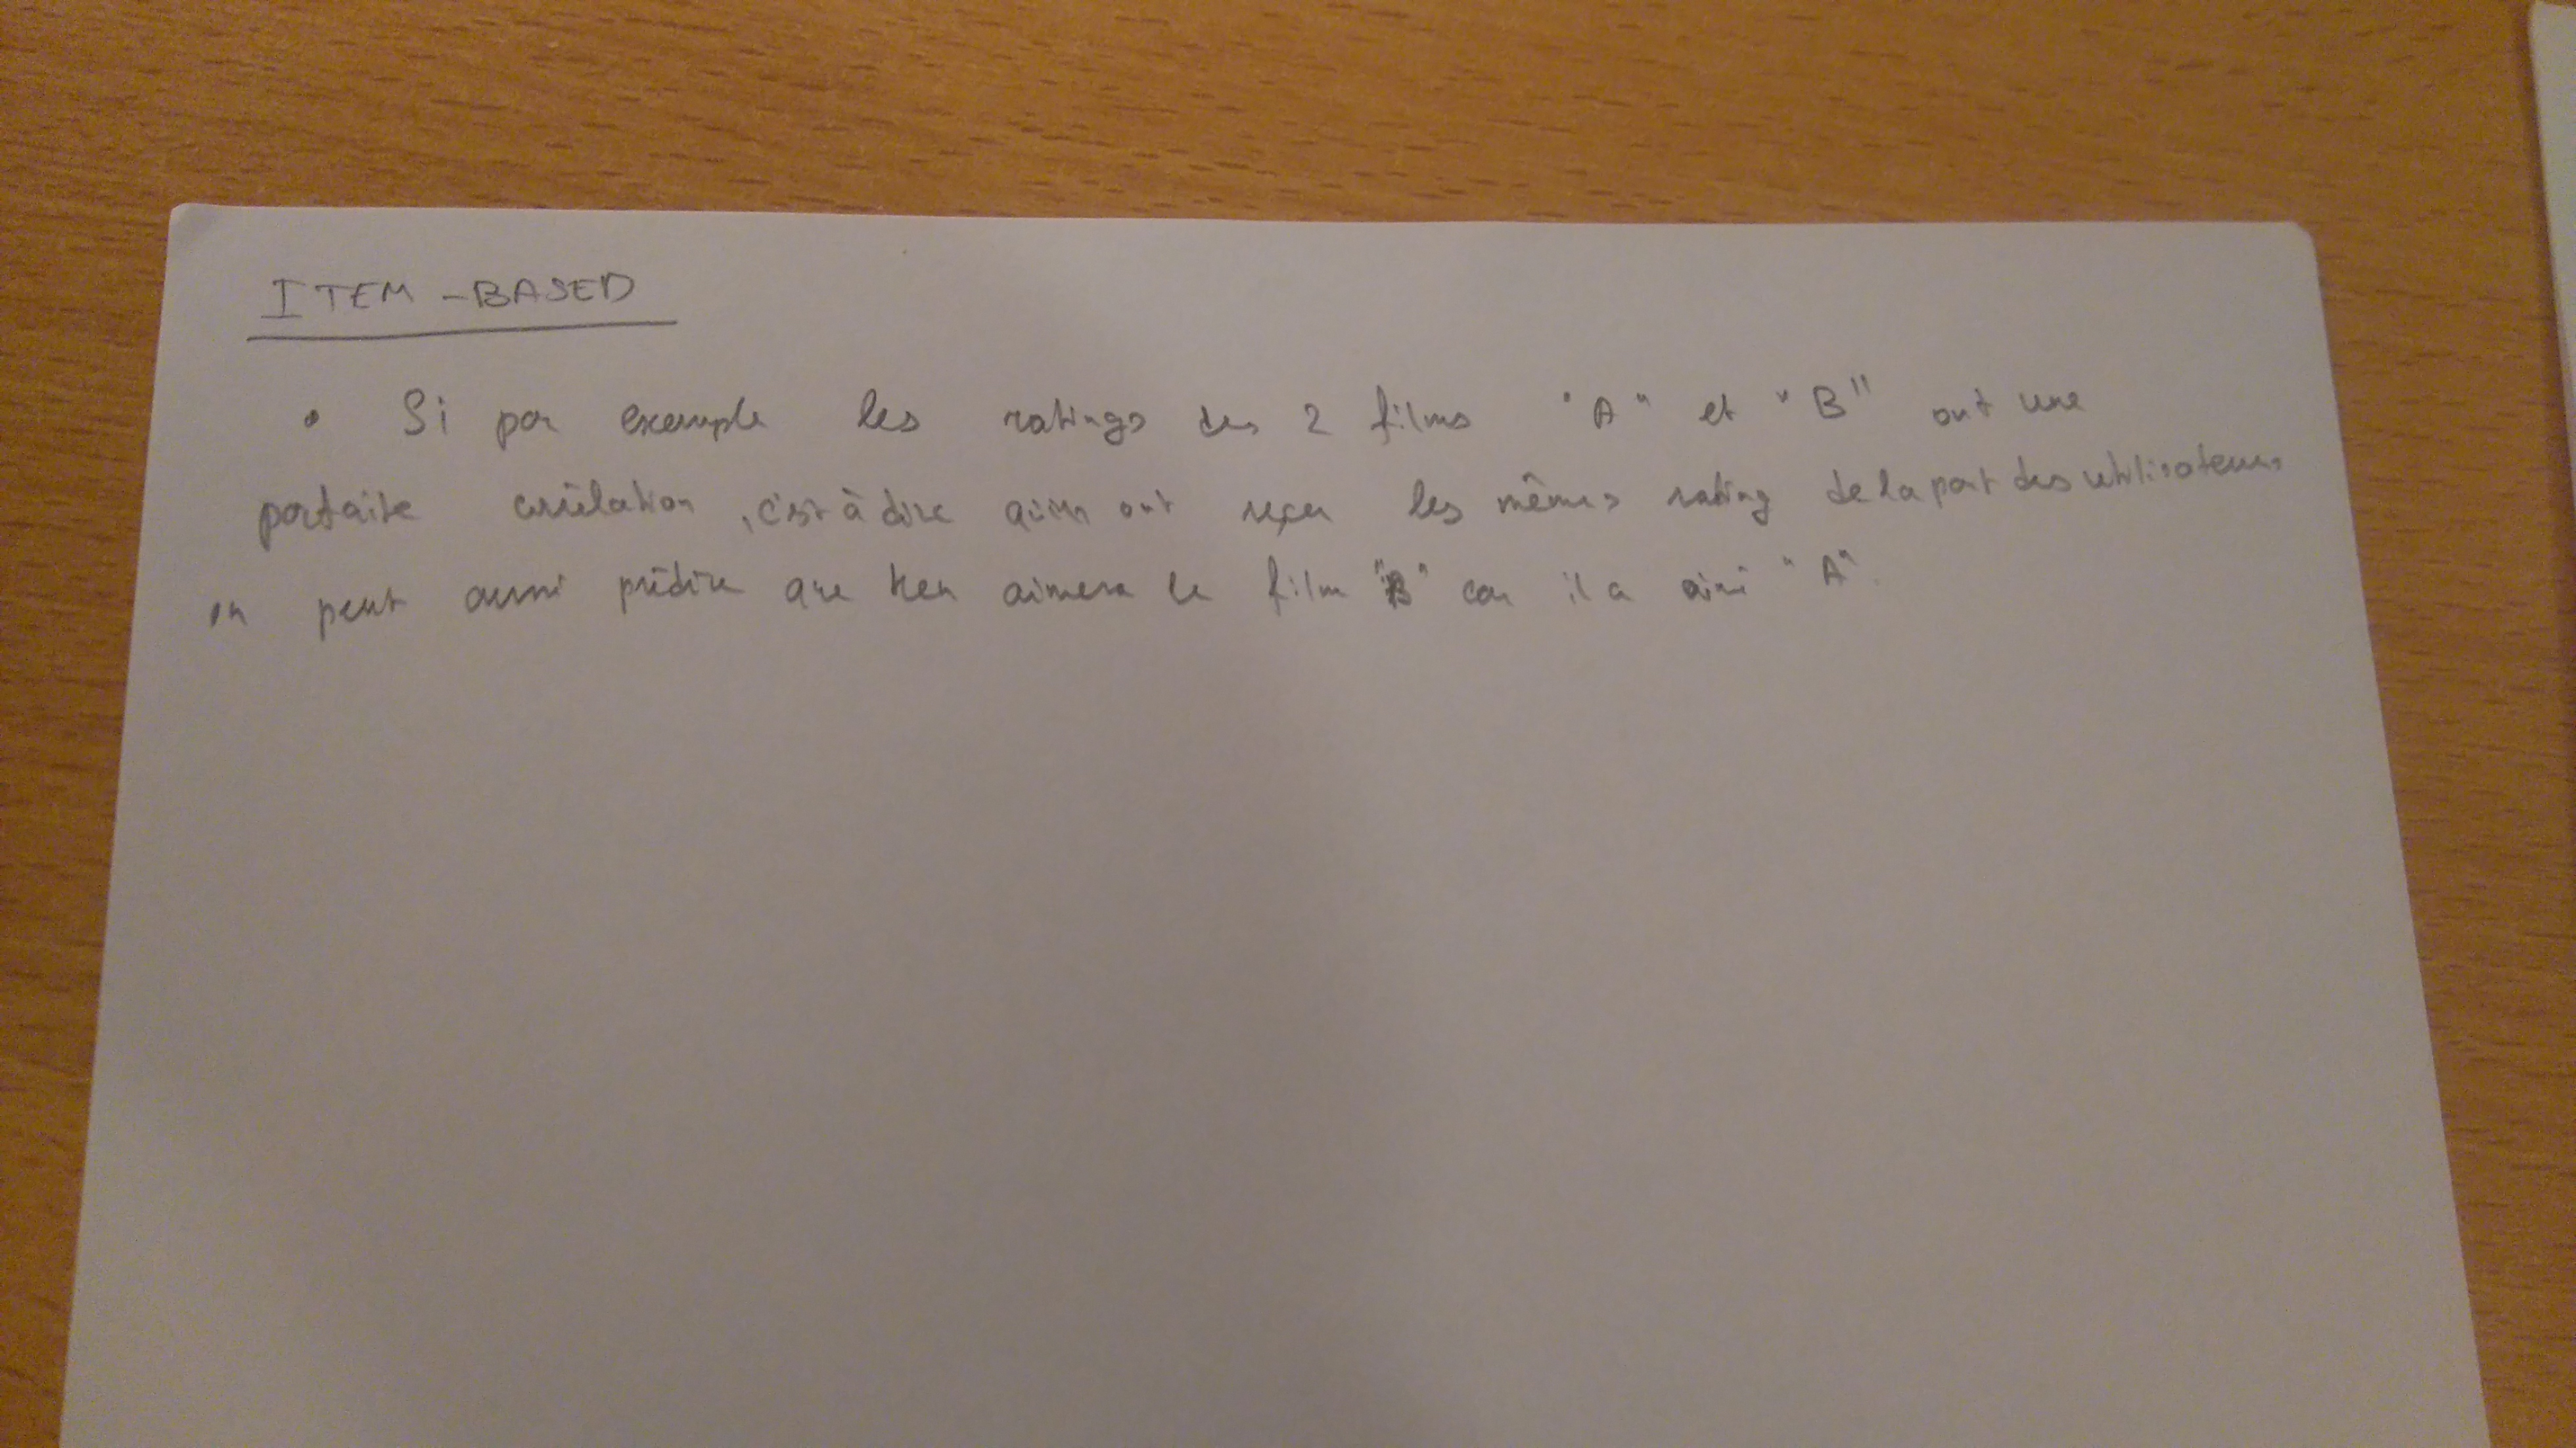 ITEM-BASED
• Si par exemple les ratings des 2 films "A" et "B" ont une
parfaite corrélation, c'est à dire qu'ils ont reçu les mêmes rating de la part des utilisateurs
on peut aussi prédire que Ken aimera le film "B" car il a aimé "A".